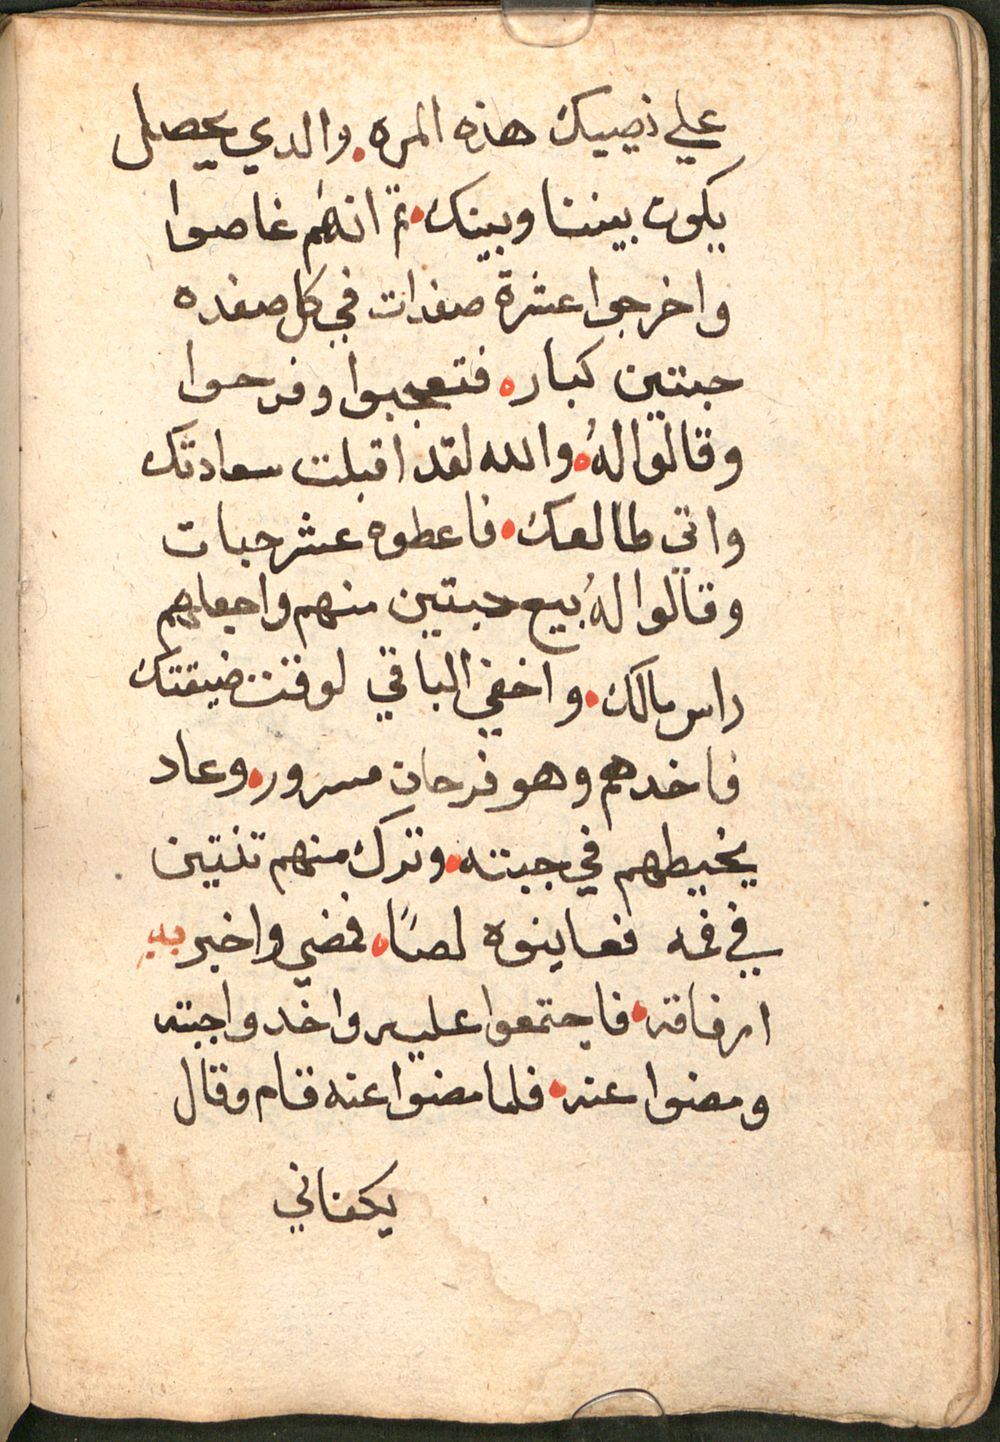 علي نصيبك هذه المره. والدي يحصل
يكون بيننا وبينك. تم انهم غاصوا
واخرجوا عشرة صفدات في كل صفده
حبتين كبار. فتعجبوا وفرحوا
وقالوا لهُ. والله لقد اقبلت سعادتك
واتي طالعك. فاعطوه عشر حبات
وقالوا لهُ بيع حبتين منهم واجعلهم
راس مالك. واخفي الباقي لوقت ضيقتك
فاخدهم وهو فرحان مسرور. وعاد
يخيطهم في جبته. وترك منهم تنتين
في فمه فعاينوه لصًا. فمضي واخبر به
ارفاقه. فاجتمعوا عليه واخدوا جبته
ومضوا عنه. فلما مضوا عنه قام وقال
يكفاني